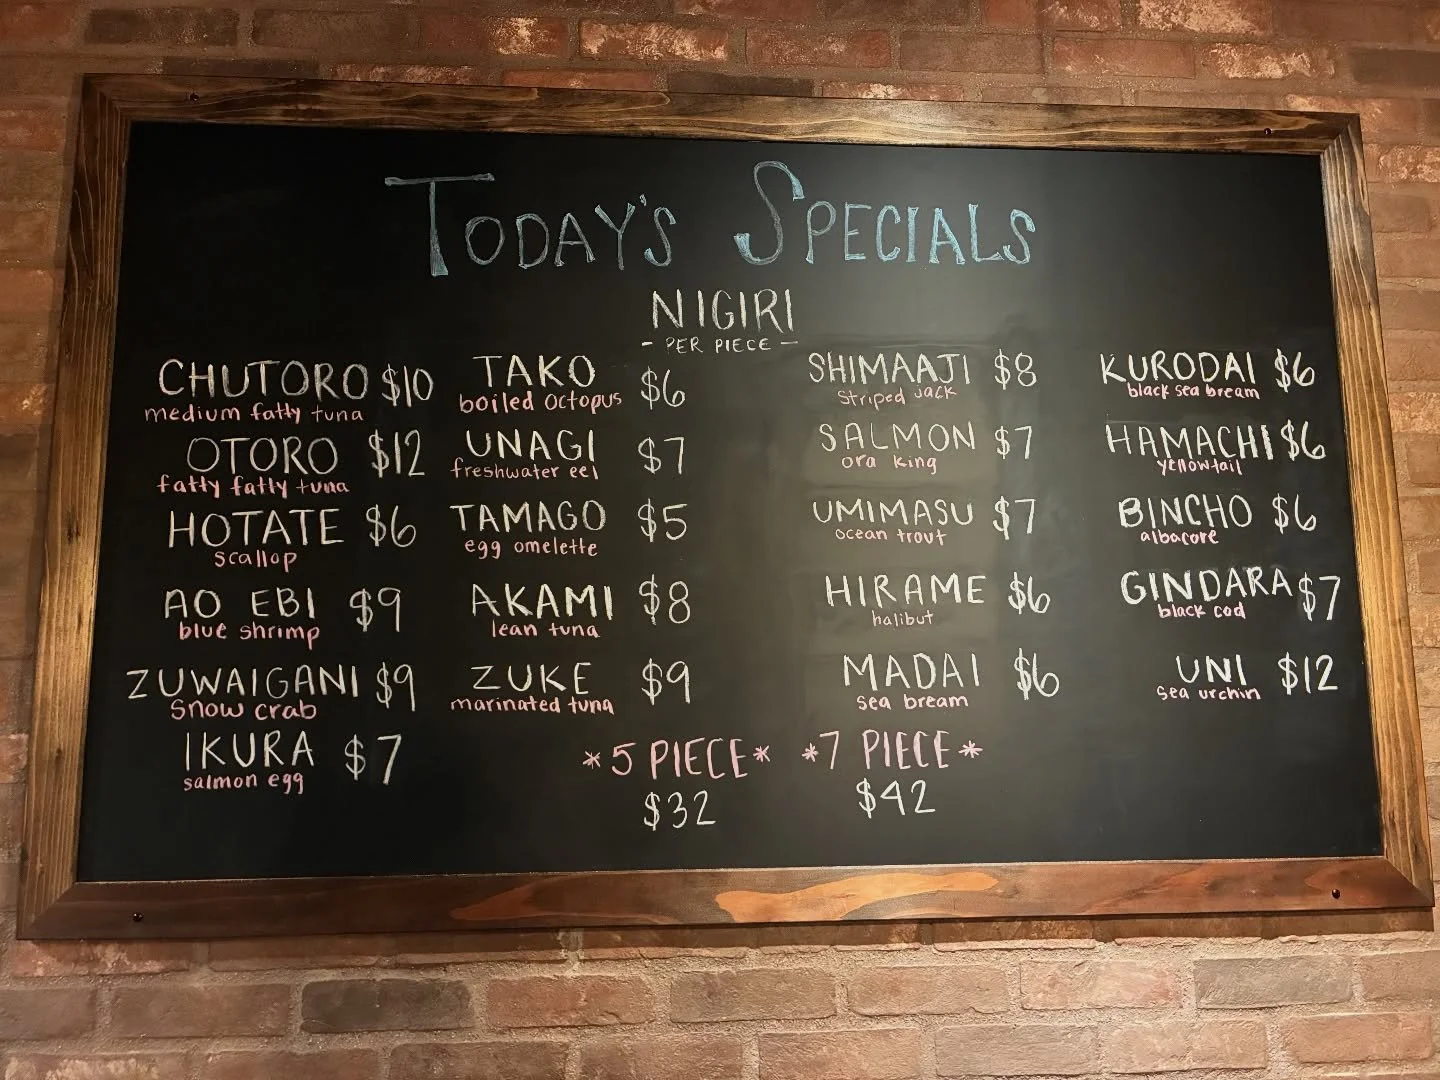 TODAY'S SPECIALS
NIGIRI
- PER PIECE -
CHUTORO $10
medium fatty tuna
OTORO $12
fatty fatty tuna
HOTATE $6
scallop
AO EBI $9
blue shrimp
ZUWAIGANI $9
snow crab
IKURA $7
salmon egg
TAKO $6
boiled octopus
UNAGI $7
freshwater eel
TAMAGO $5
egg omelette
AKAMI $8
lean tuna
ZUKE $9
marinated tuna
SHIMAAJI $8
striped jack
SALMON $7
ora king
UMIMASU $7
ocean trout
HIRAME $6
halibut
MADAI $6
sea bream
KURODAI $6
black sea bream
HAMACHI $6
yellowtail
BINCHO $6
albacore
GINDARA $7
black cod
UNI $12
sea urchin
*5 PIECE*
$32
*7 PIECE*
$42